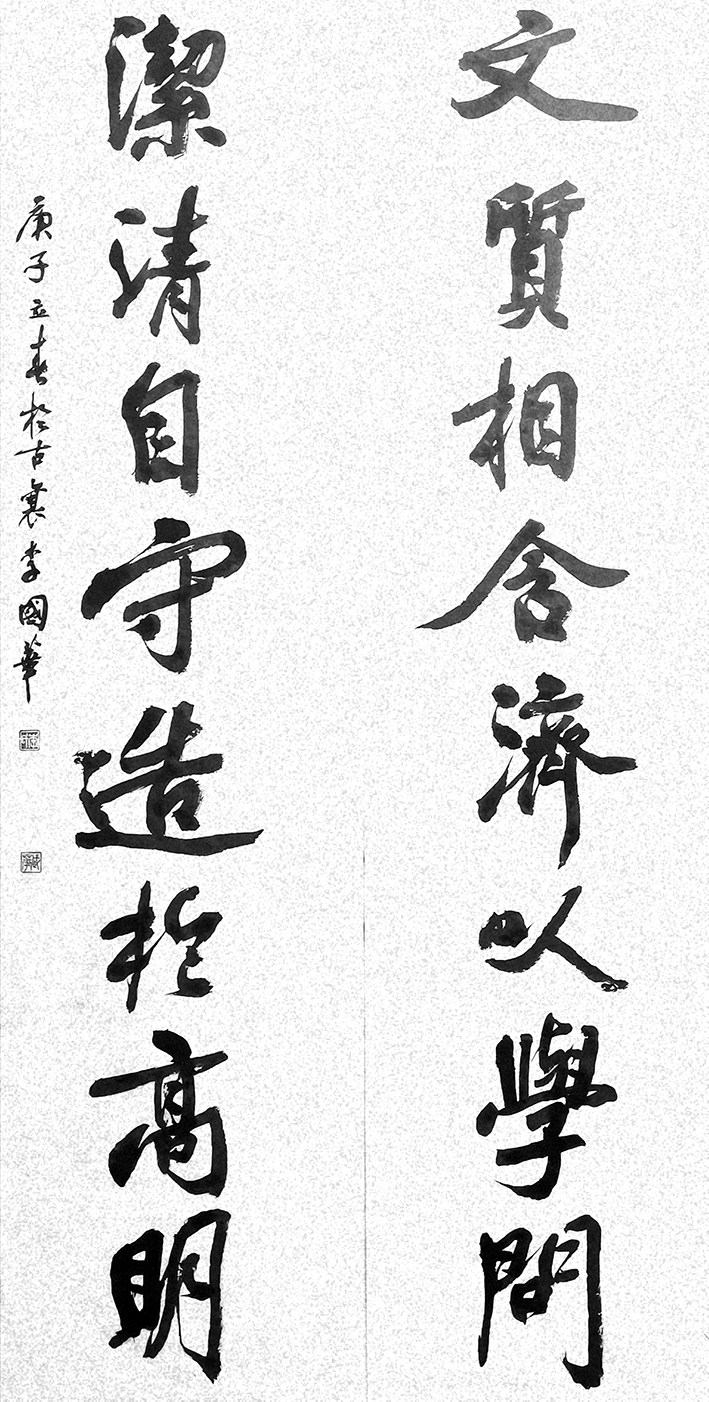 文質相含濟以學問
潔清自守造於高明
庚子立春於古襄李國華